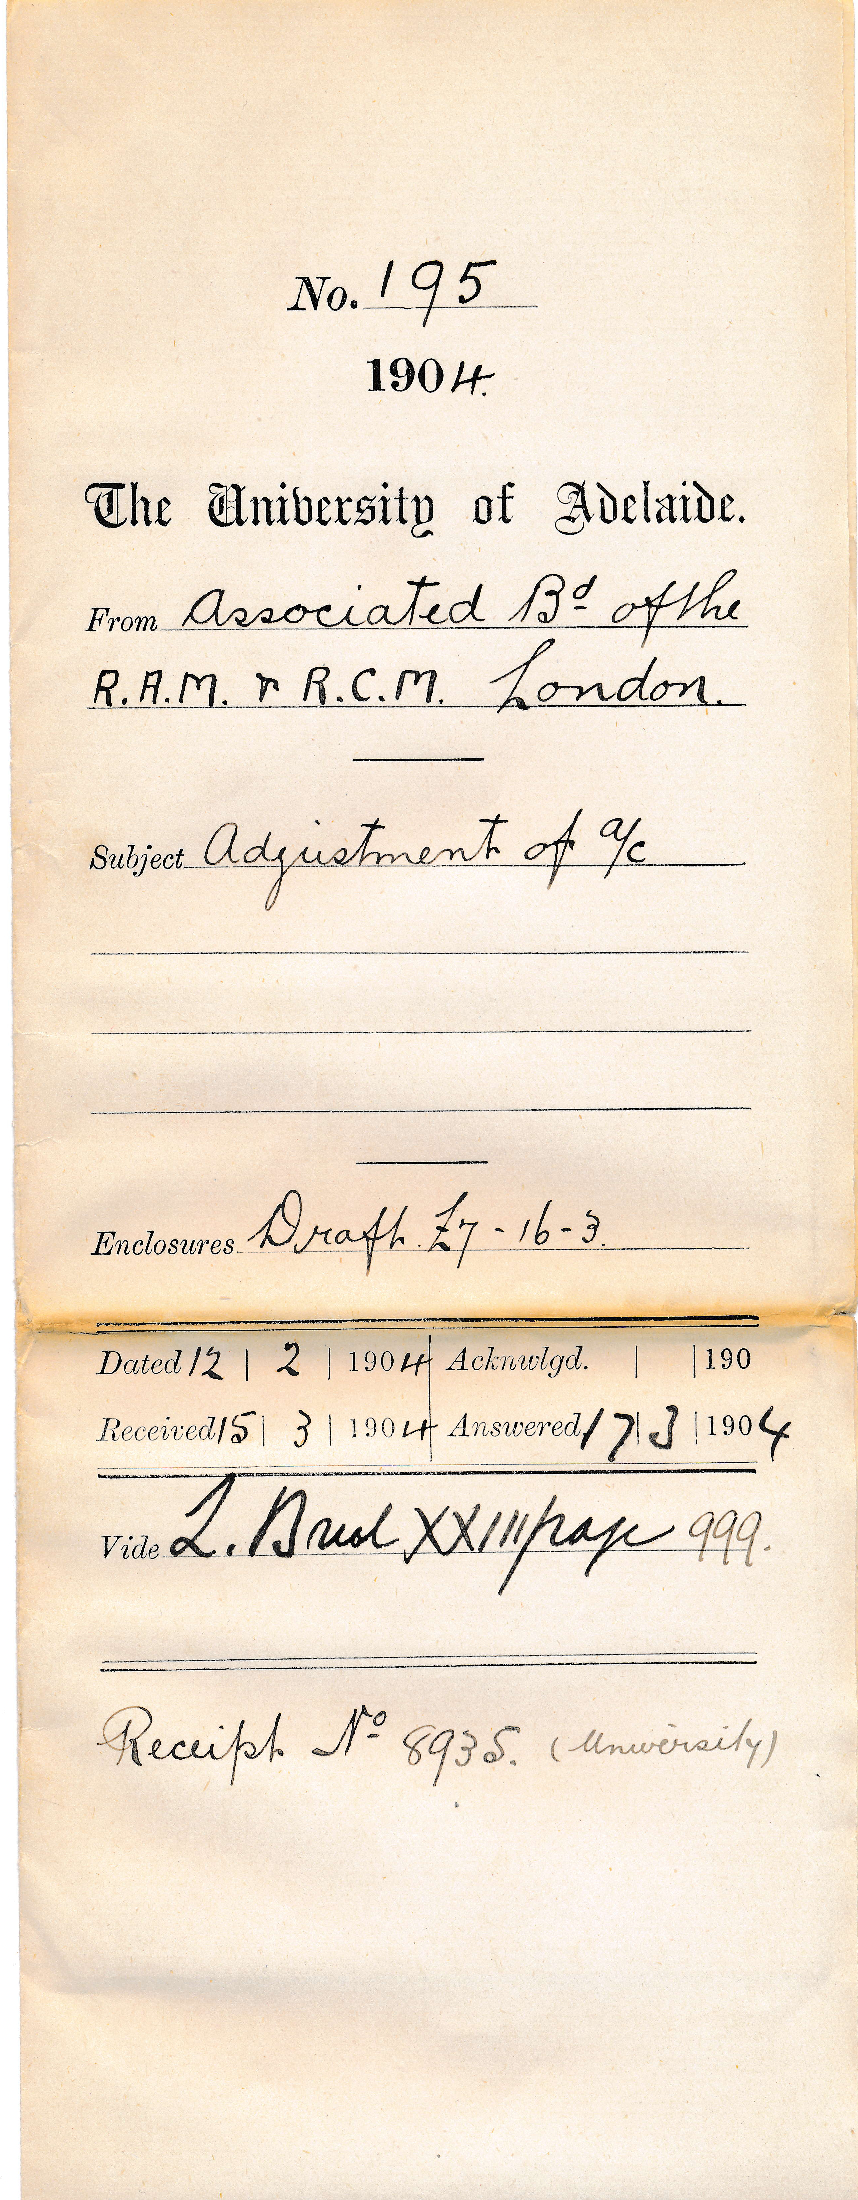 No. 195
1904.
The University of Adelaide.
From Associated Bd of the
R.A.M. & R.C.M. London.
Subject Adjustment of a/c
Enclosures Draft £7-16-3.
Dated 12 | 2 | 1904 Acknwlgd. | | 190
Received 15 | 3 | 1904 Answered 17 | 3 | 1904
Vide L. XXIII page 999.
Receipt No 8935. (University)